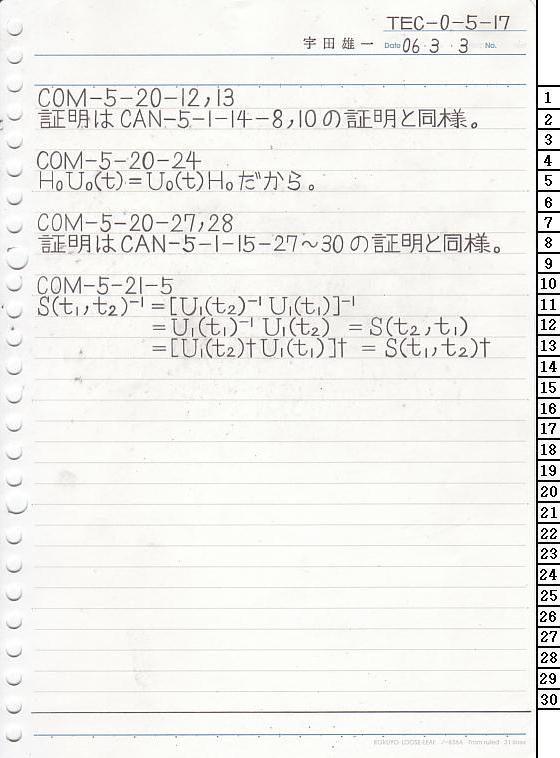 TEC-0-5-17
宇田雄一 Date 06・3・3 No.
COM-5-20-12,13
証明はCAN-5-1-14-8,10の証明と同様。
COM-5-20-24
H₀U₀(t)=U₀(t)H₀だから。
COM-5-20-27,28
証明はCAN-5-1-15-27〜30の証明と同様。
COM-5-21-5
S(t₁,t₂)⁻¹=[U₁(t₂)⁻¹U₁(t₁)]⁻¹
=U₁(t₁)⁻¹U₁(t₂) =S(t₂,t₁)
=[U₁(t₂)†U₁(t₁)]† =S(t₁,t₂)†
1
2
3
4
5
6
7
8
9
10
11
12
13
14
15
16
17
18
19
20
21
22
23
24
25
26
27
28
29
30
KOKUYO LOOSE-LEAF ノ-836A 7mm ruled 31 lines